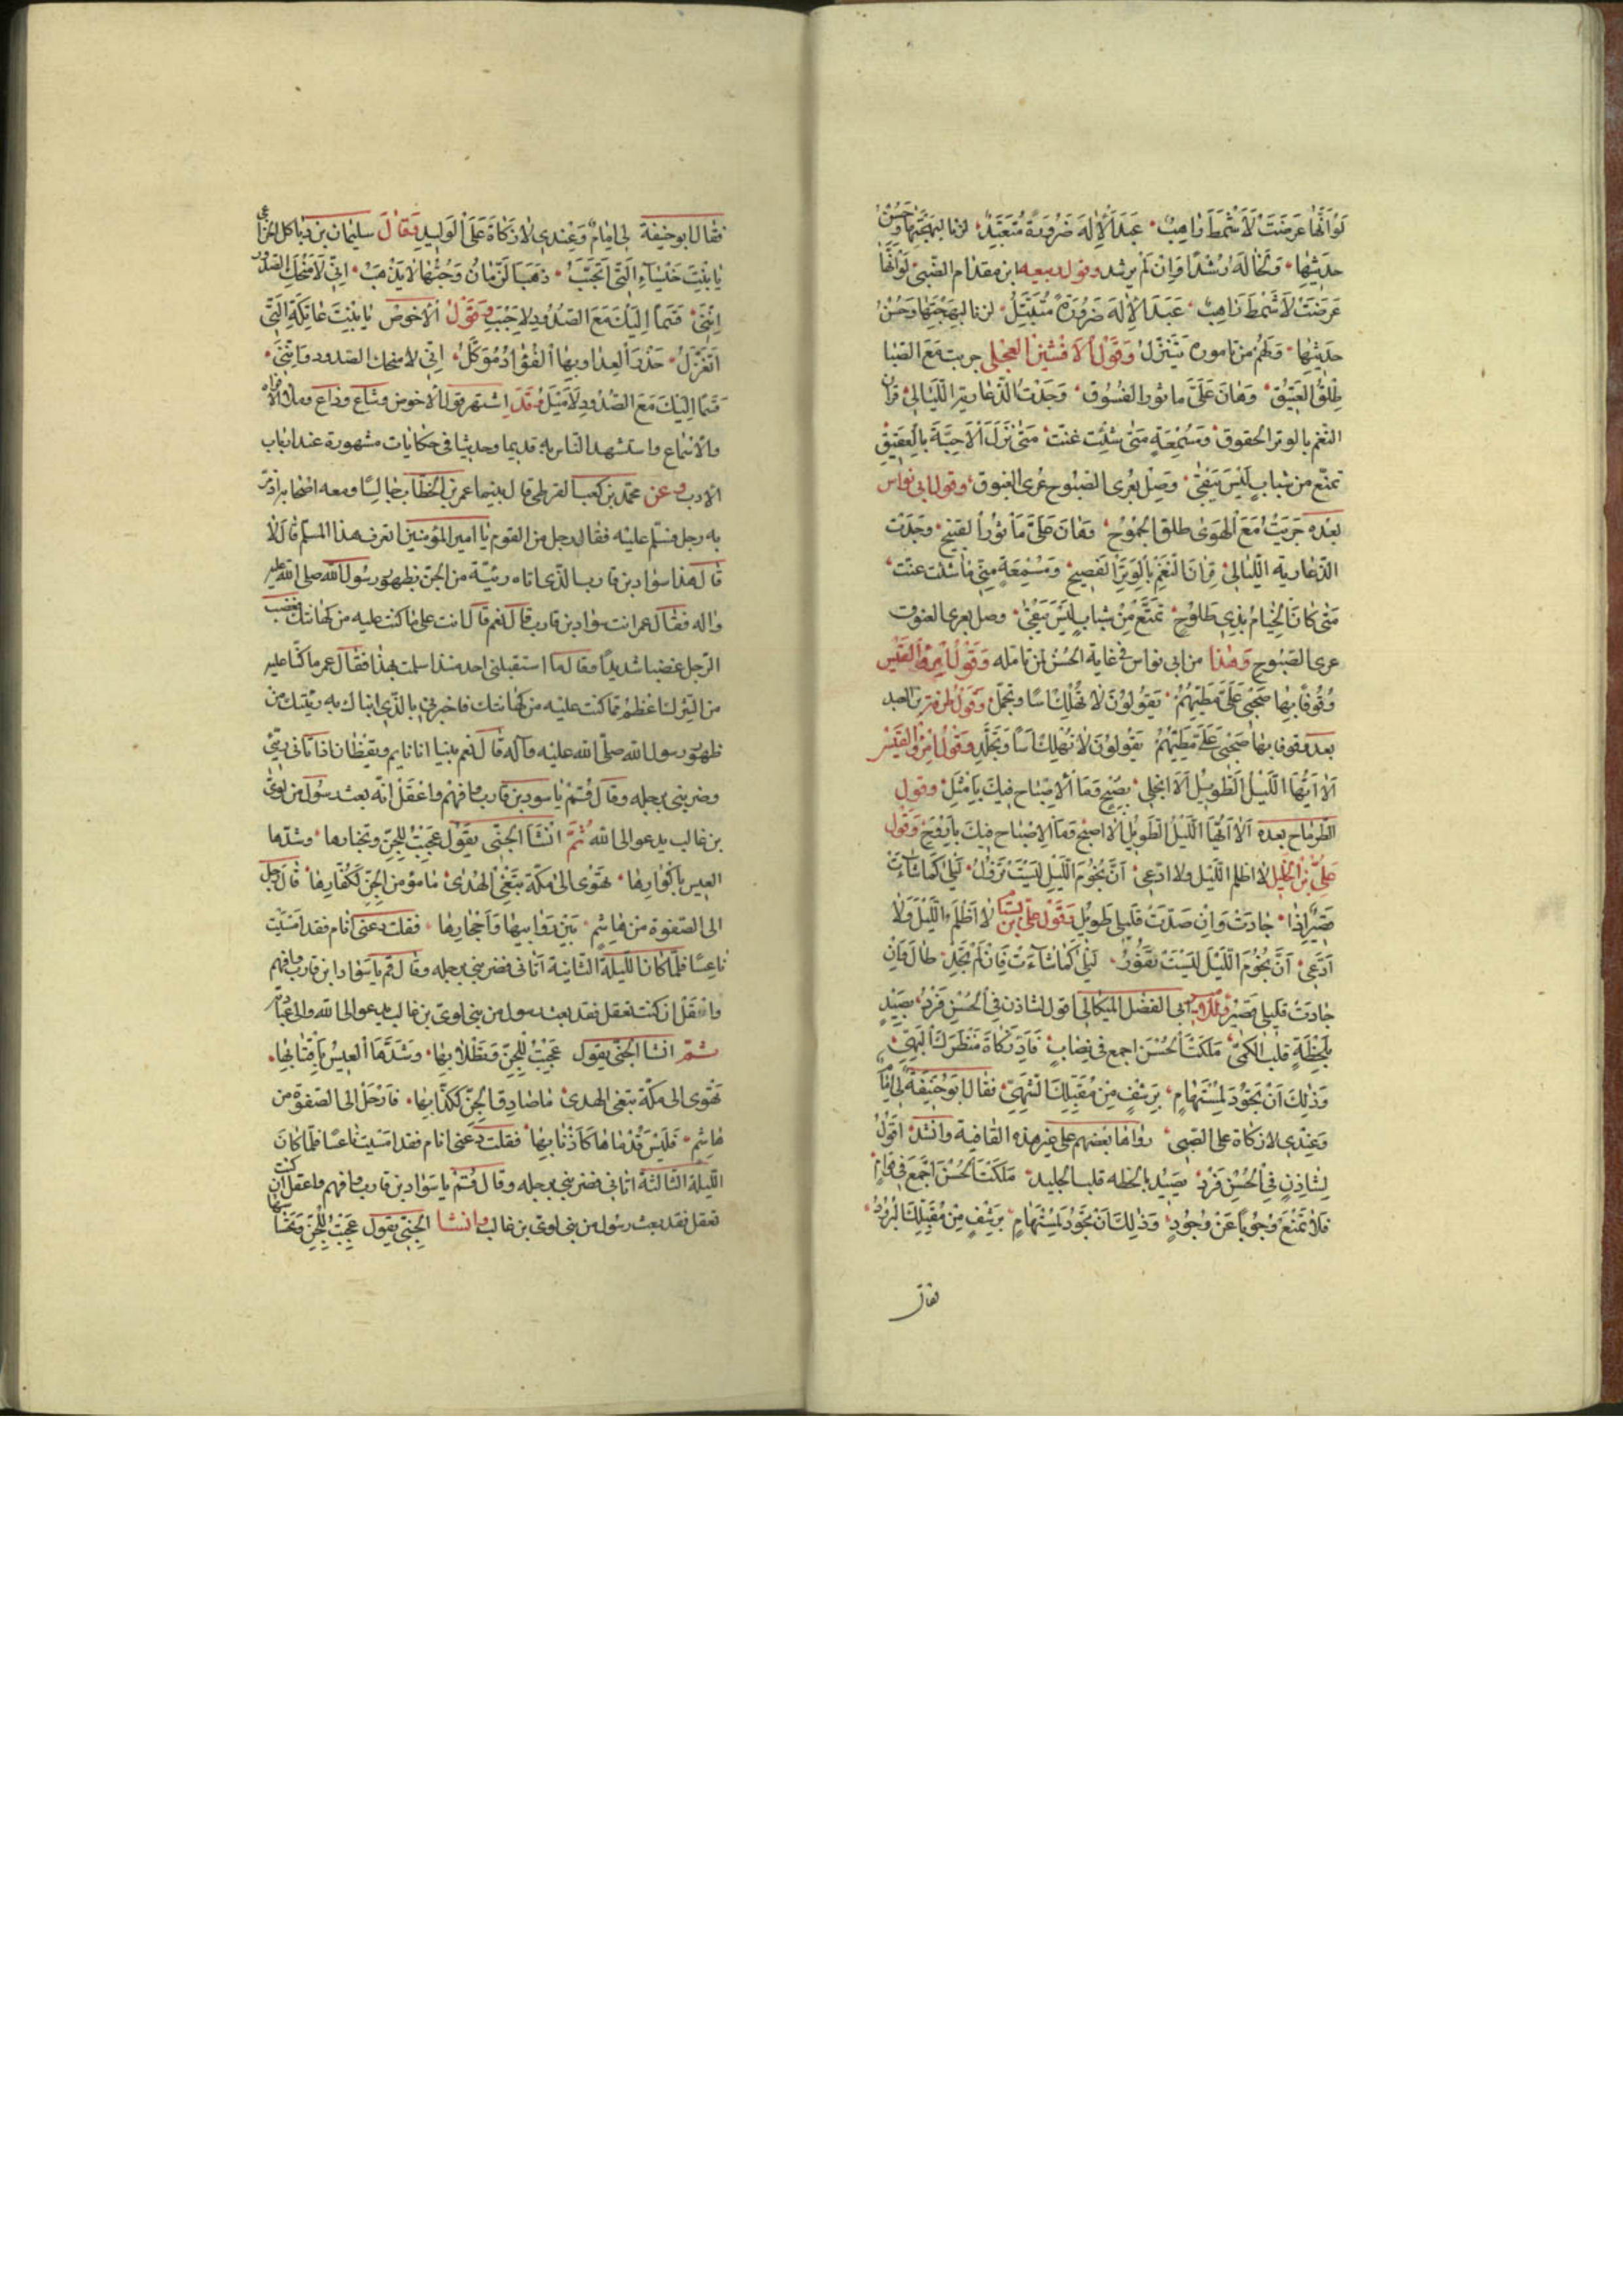 لَوْ اَنَّهَا عَرَضَتْ لَاَشْمَطَ رَاهِبٍ عَبَدَ الْاِلٰهَ ضَرُورَةً مُتَعَبِّدٍ لرنا لبهجتها وحُسْنِ
حديثها وَلَخَالَهُ رُشْدًا وَاِنْ لَمْ يرشد وقول ربيعه ابن مقدام الضبيّ لَوْ اَنَّهَا
عَرَضَتْ لَاَشْمَطَ رَاهِبٍ عَبَدَ الْاِلٰهَ ضَرُورَةً مُتَبَتِّلُ لرنا لبهجتها وَحُسْنِ
حديثها وَلَهَمَّ من تاموره يَتَنَزَّلُ وَقَوْلُ الْاَفْشِينَ العجلى جريت مع الصّبا
طِلْقَ العَتِيقِ وَهَانَ عَلَىَّ ماثور الفُسُوقِ وَجَدْتُ الَذَّ عارية اللّيالى قران
النّغم بالوتر الخفوق وَمُسْمِعَةٍ مَتَى شِئْتَ غنّت مَتَى نَزَلَ الْاَحِبَّةُ بِالْعَقِيقِ
تمتّع من شبابٍ لَيْسَ يَبْقَى وَصِلْ بعُرى الصّبُوح عُرى الغبوق وقول ابى نواس
بعده جَرَيْتُ مَعَ الْهَوَى طلق الجُمُوح وَهَانَ عَلَىَّ مَأْثُورُ القَبِيحِ وَجَدْتُ
الذّ عارية اللّيالى قِرَانَ النَّغَمِ بِالْوَتَرِ الْفَصِيحِ وَمُسْمِعَةٍ متى ما شئت غنّت
مَتَى كَانَ الْخِيَامُ بِذِى طُلُوحٍ تَمَتَّعْ مِنْ شَبَابٍ لَيْسَ يَبْقَى وصل بعرى الغبوق
عرى الصّبُوحِ وَهٰذَا من ابى نواس فى غاية الحُسْن لمن تامّله وَقَوْلُ امرؤ القَيْس
وُقُوفًا بِهَا صَحْبِى عَلَىَّ مَطِيَّهُمْ يَقُولُونَ لَا تَهْلِكْ اَسًا وتجمّل وَقَوْلُ طرفة بن العبد
بعده وقوفا بها صَحْبِى عَلَىَّ مَطِيَّهُمْ يَقُولُونَ لَا تَهْلِكْ اَسًا وَتَجَلَّدِ وَقَوْلُ امْرِؤ القَيْس
اَلَا اَيُّهَا اللَّيْلُ الطَّوِيلُ اَلَا انْجَلِى بِصُبْحٍ وَمَا الْاِصْبَاحُ فِيكَ بِاَمْثَلِ وقول
الطّرماح بعده اَلَا اَيُّهَا اللَّيْلُ الطَّوِيلُ اَلَا اصبح وَمَا الْاِصْبَاح فِيكَ بِاَرْوَحِ وَقَوْل
عَلِىِّ بْنِ الْخَلِيلِ لا اظلم اللّيل ولا ادّعى اَنَّ نُجُومَ اللَّيْلِ لَيْسَتْ تَزُولُ لَيْلِى كَمَا شَاءَتْ
قَصِيرٌ اِذَا جَادَتْ وَاِنْ صَدَّتْ فليلى طَوِيل وَقَوْلُ علىّ بن بسّام لَا اَظْلِمُ اللَّيْلَ وَلَا
اَدَّعِى اَنَّ نُجُومَ اللَّيْلِ لَيْسَتْ تَغُورُ لَيْلِى كَمَا شَاءَتْ فَاِنْ لَمْ تَجُدْ طَالَ وَاِنْ
جَادَتْ فليلى قصير ابى الفضل الميكالى اقول لشاذن فِى الْحُسْنِ فَرْدٍ يَصِيدُ
بِلَحْظِهِ قلب الكمىّ مَلَكْتَ الْحُسْنَ اجمع فى نصابٍ فَاَدِّ زَكَاةَ مَنْظَرِكَ الْبَهِىِّ
وَذٰلِكَ اَنْ تَجُودَ لِمُسْتَهَامٍ بِرَشْفٍ مِنْ مُقَبَّلِكَ الشَّهِىِّ فقال ابو حنيفة لى امام
وَعِنْدِى لا زكاة على الصّبى رواها بعضهم على غير هذه القافية وانشد اقول
لِشَاذِنٍ فِى الْحُسْنِ فَرْدٍ يَصِيدُ بلحظه قلب الجليد مَلَكْتَ الْحُسْنَ اَجْمَعَ فِى قوامٍ
فَلَا تَمْنَعْ وُجُوبًا عَنْ وُجُودٍ وَذٰلِكَ اَنْ تَجُودَ لِمُسْتَهَامٍ بِرَشْفٍ مِنْ مُقَبَّلِكَ الْبَرُودِ
فقال
فقال ابو حنيفة لى اِمَامٌ وَعِنْدِى لَا زَكَاةَ عَلَى الْوَلِيدِ فَقَالَ سليمان بن الخزاعى
يَا بَيْتَ خَنْسَاءَ الَّتِى اَتَجَنَّبُ ذَهَبَ الزَّمَانُ وَحُبُّهَا لَا يَذْهَبُ اِنِّى لَاَمْنَحُكَ الصّدود
وَاِنَّنِى قَسَمًا اِلَيْكَ مَعَ الصُّدُودِ لَاَجْنَبُ وَقَوْلُ الْاَحْوَصِ يَا بَيْتَ عَاتِكَةَ الَّتِى
اَتَغَزَّلُ حَذَرَ الْعِدَا وَبِهَا الْفُؤَادُ مُوَكَّلُ اِنِّى لامنحك الصّدود وَاِنَّنِى
قَسَمًا اِلَيْكَ مَعَ الصُّدُودِ لَاَمْيَلُ وَقَد اشتهر قول الاحوص وشاع وذاع وملا الافواه
والاسماع واستشهد النّاس به قديما وحديثا فى حكايات مشهورة عند ارباب
الادب وعن محمّد بن كعب القرظى قال بينما عمر بن الخطّاب جالسًا ومعه اصحابه اذ مرّ
به رجل فسلّم عليه فقال رجل من القوم يا امير المؤمنين اتعرف هذا المسلم قال لا
قال هذا سواد بن قارب الّذى اتاه رئيّه من الجنّ بظهور رسول الله صلى الله عليه
واله فقال عمر انت سواد بن قارب قال نعم قال انت على ما كنت عليه من كهانتك فغضب
الرّجل غضبا شديدًا وقال ما استقبلنى احد منذ اسلمت بهذا فقال عمر ما كنّا عليه
من الشّرك اعظم ممّا كنت عليه من كهانتك فاخبرنى بالّذى انباك به رئيّك من
ظهور رسول الله صلّى الله عليه وآله قال نعم بينا انا نايم ويقظان اذ اتانى رئيّى
وضربنى برجله وقال قُمْ يا سواد بن قارب وافهم واعقل انّه بعث رسول من لوىّ
بن غالب يدعو الى الله ثُمَّ انْشَأَ الجنّى يَقُول عَجِبْتُ لِلْجِنِّ وتخبارها وشدّها
العيس بِاَكْوَارِهَا تَهْوِى اِلَى مَكَّةَ تَبْغِى الْهُدَى مَا مؤمن الْجِنِّ كَكُفَّارِهَا فارحل
الى الصّفوة من هَاشِمٍ بَيْنَ رَوَابِيهَا وَاَحْجَارِهَا فقلت دعنى انام فقد امسيت
ناعسًا فلمّا كان اللّيلة الثّانية اتانى فضربنى برجله وقال قم يا سواد ابن قارب وافهم
واعقل ان كنت تعقل فقد بعث رسول من بنى لوىّ بن غالب يدعو الى الله والى عبادته
ثمّ انشا الجنّى يقول عَجِبْتُ لِلْجِنِّ وَتَطْلَابِهَا وَشَدِّهَا الْعِيسَ بِاَقْتَابِهَا
تَهْوِى الى مكّة تبغى الهدى مَا صَادِق الْجِنِّ كَكَذَّابِهَا فَارْحَلْ الى الصّفوة من
هَاشِمٍ فَلَيْسَ قُدَّامَاهَا كَاَذْنَابِهَا فقلت دعنى انام فقد امسيت ناعسًا فلمّا كان
اللّيلة الثّالثة اتانى فضربنى برجله وقال قُمْ يا سواد بن قارب وافهم واعقل ان كنت
تعقل فقد بعث رسول من بنى لوىّ بن غالب وانشا الْجِنِّى يقول عَجِبْتُ لِلْجِنِّ وَتَحْسَاسِهَا